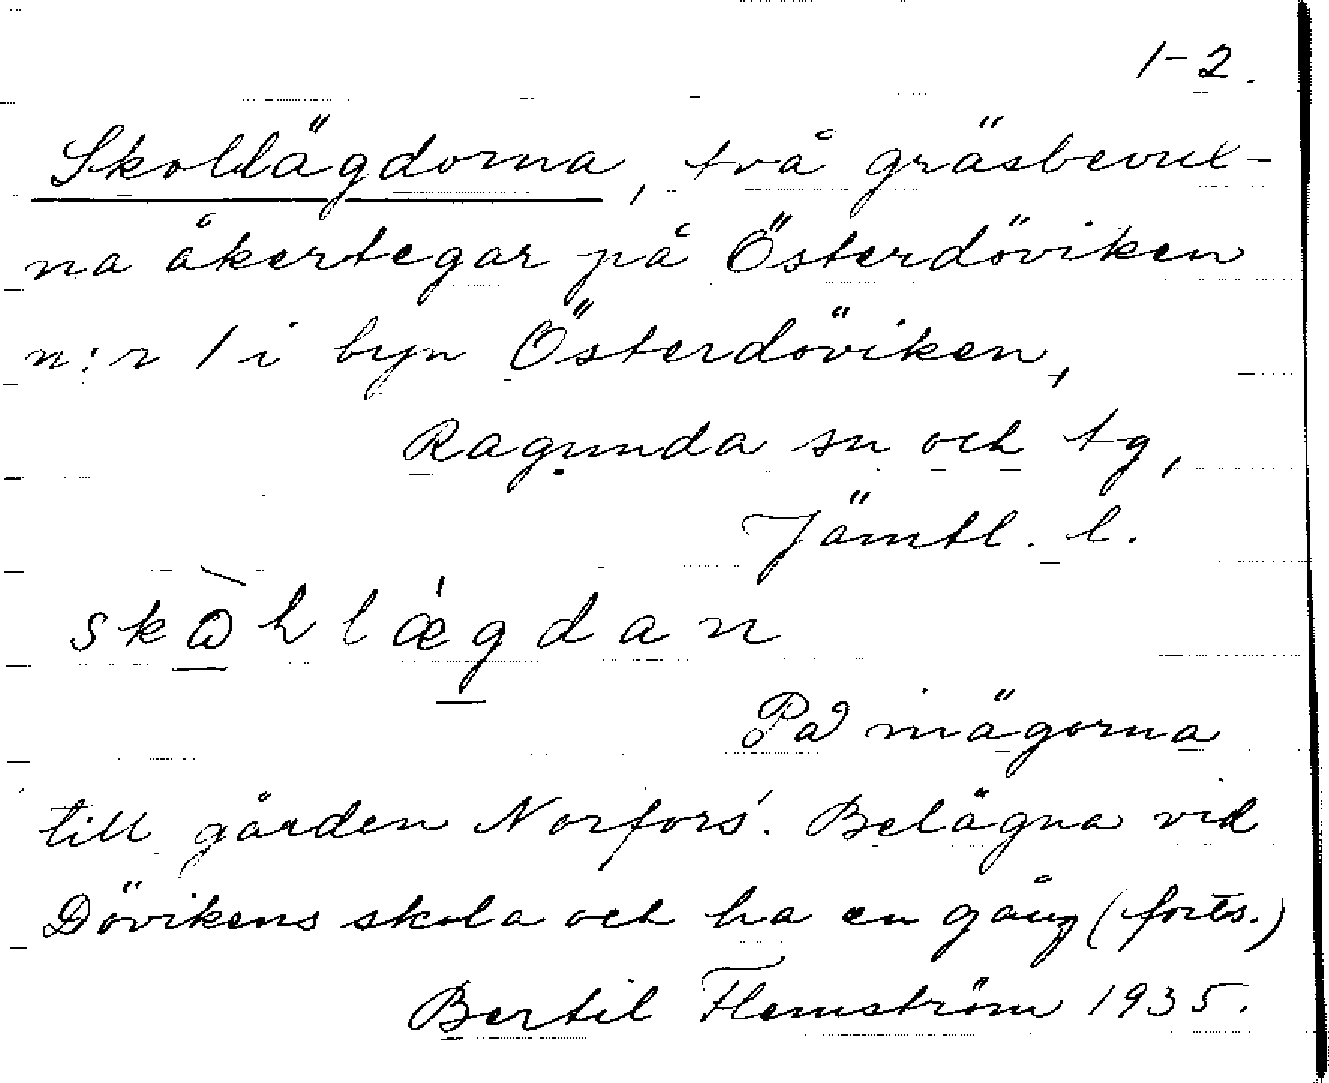 1-2.
Skollägdorna, två gräsbevux-
na åkertegar på Österdöviken
n:r 1 i byn Österdöviken,
Ragunda sn och tg,
Jämtl. l.
På inägorna
till gården Norfors'. Belägna vid
Dövikens skola och ha en gång (forts.)
Bertil Flemström 1935.